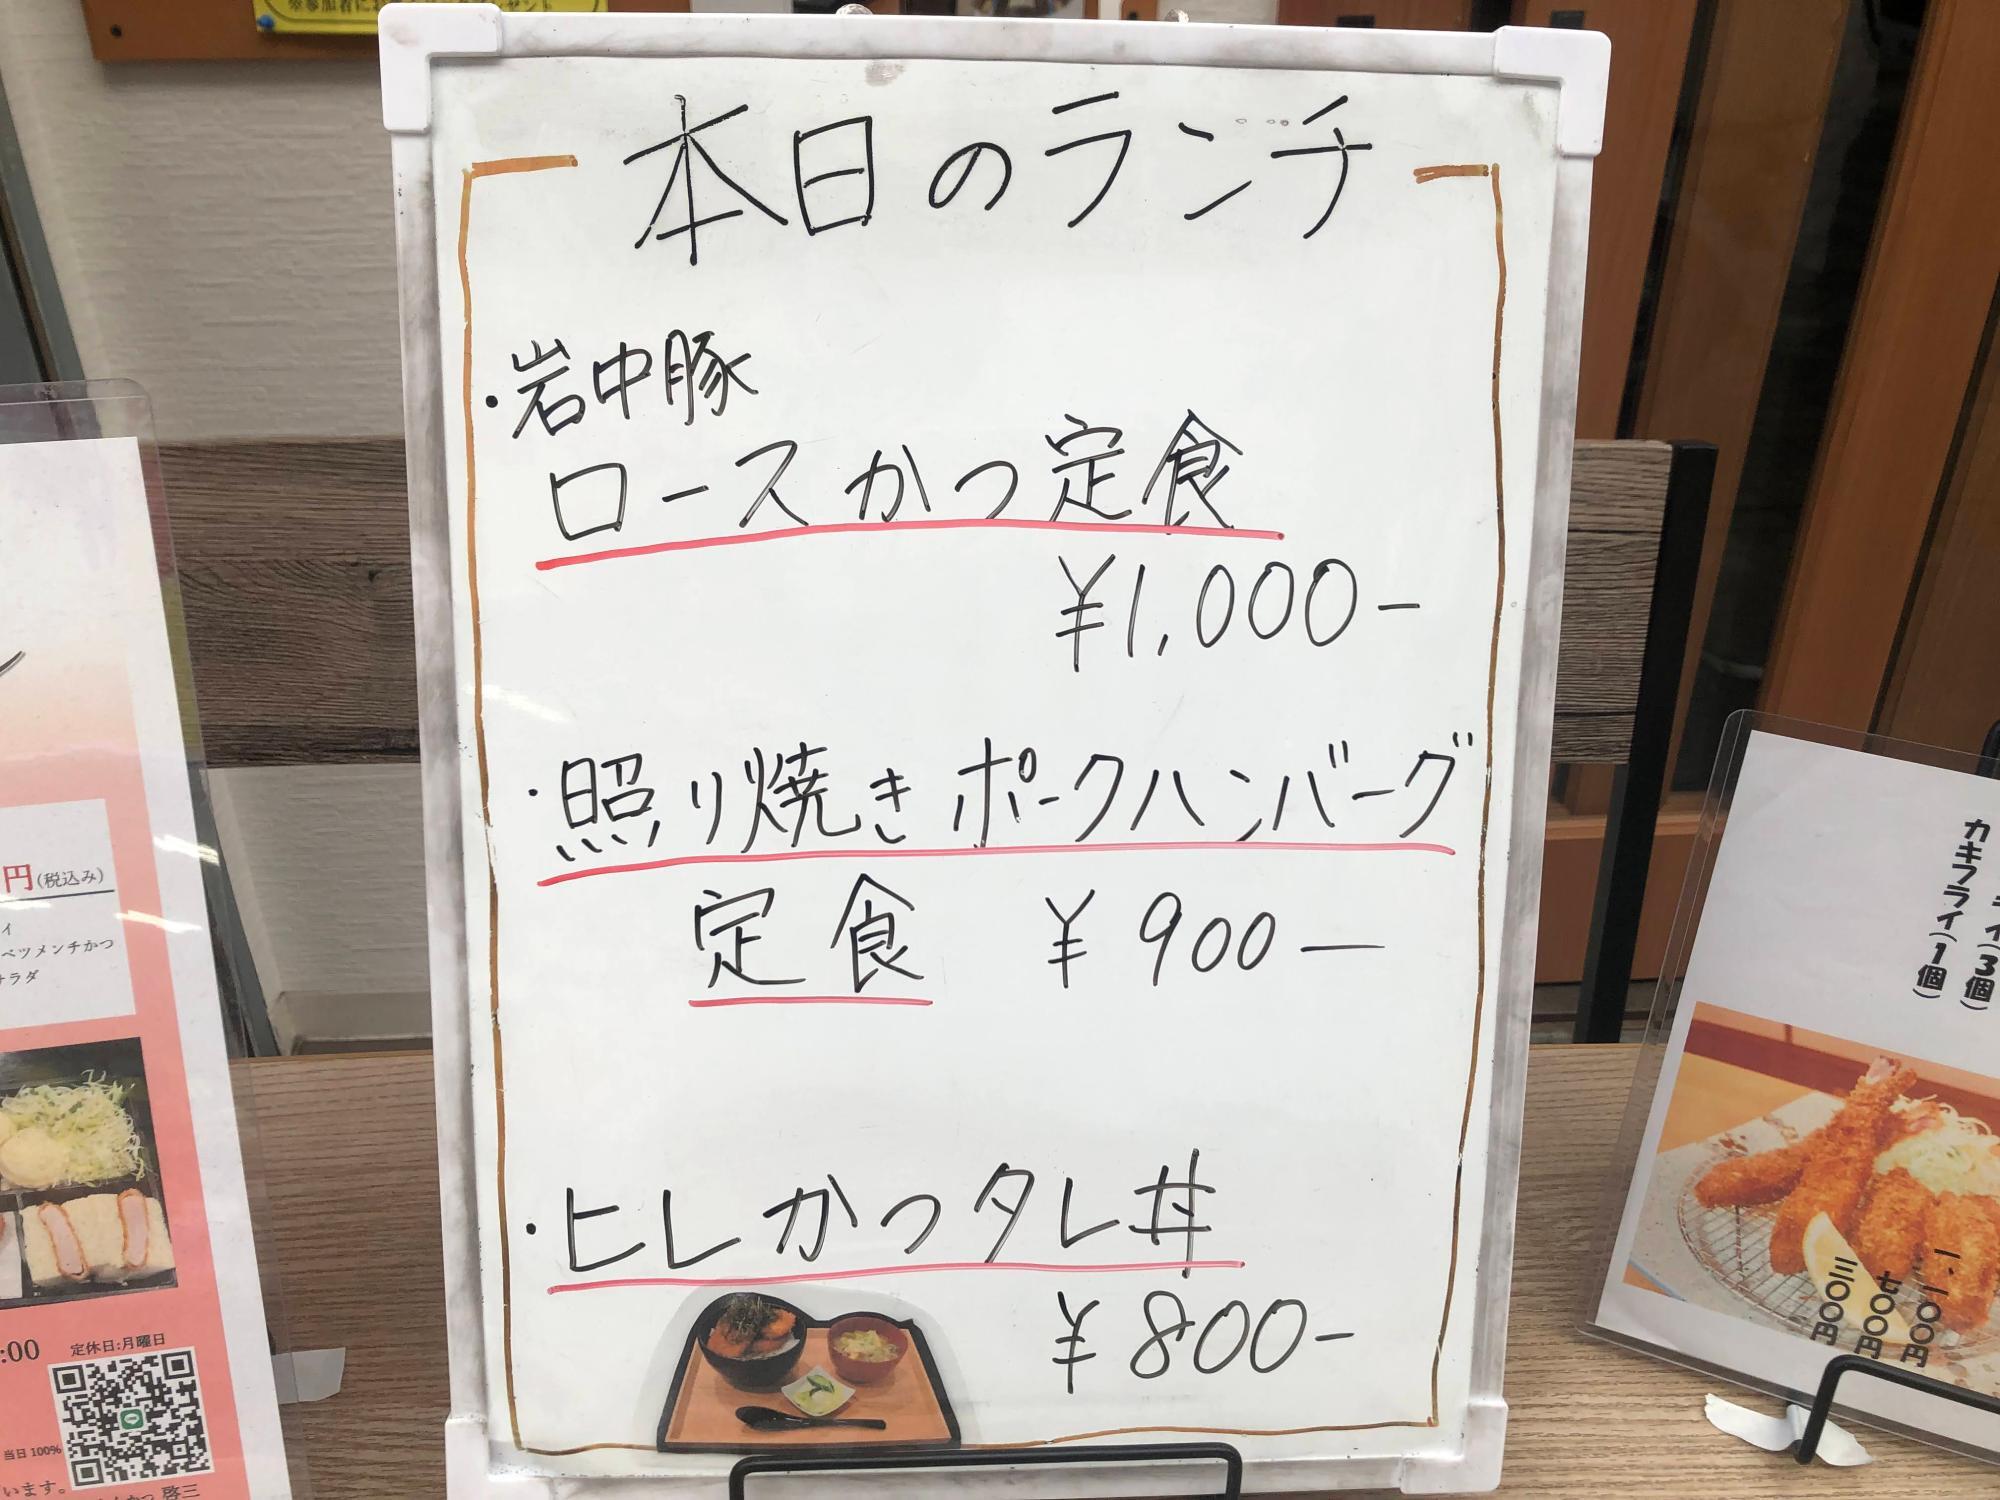 本日のランチ
・岩中豚
ロースかつ定食
¥1,000-
・照り焼きポークハンバーグ
定食 ¥900-
・ヒレかつタレ丼
¥800-
円(税込み)
イ
ベツメンチかつ
サラダ
:00 定休日:月曜日
当日100%
います。
啓三
(3個)
カキフライ(1個)
一、一〇〇円
七〇〇円
三〇〇円